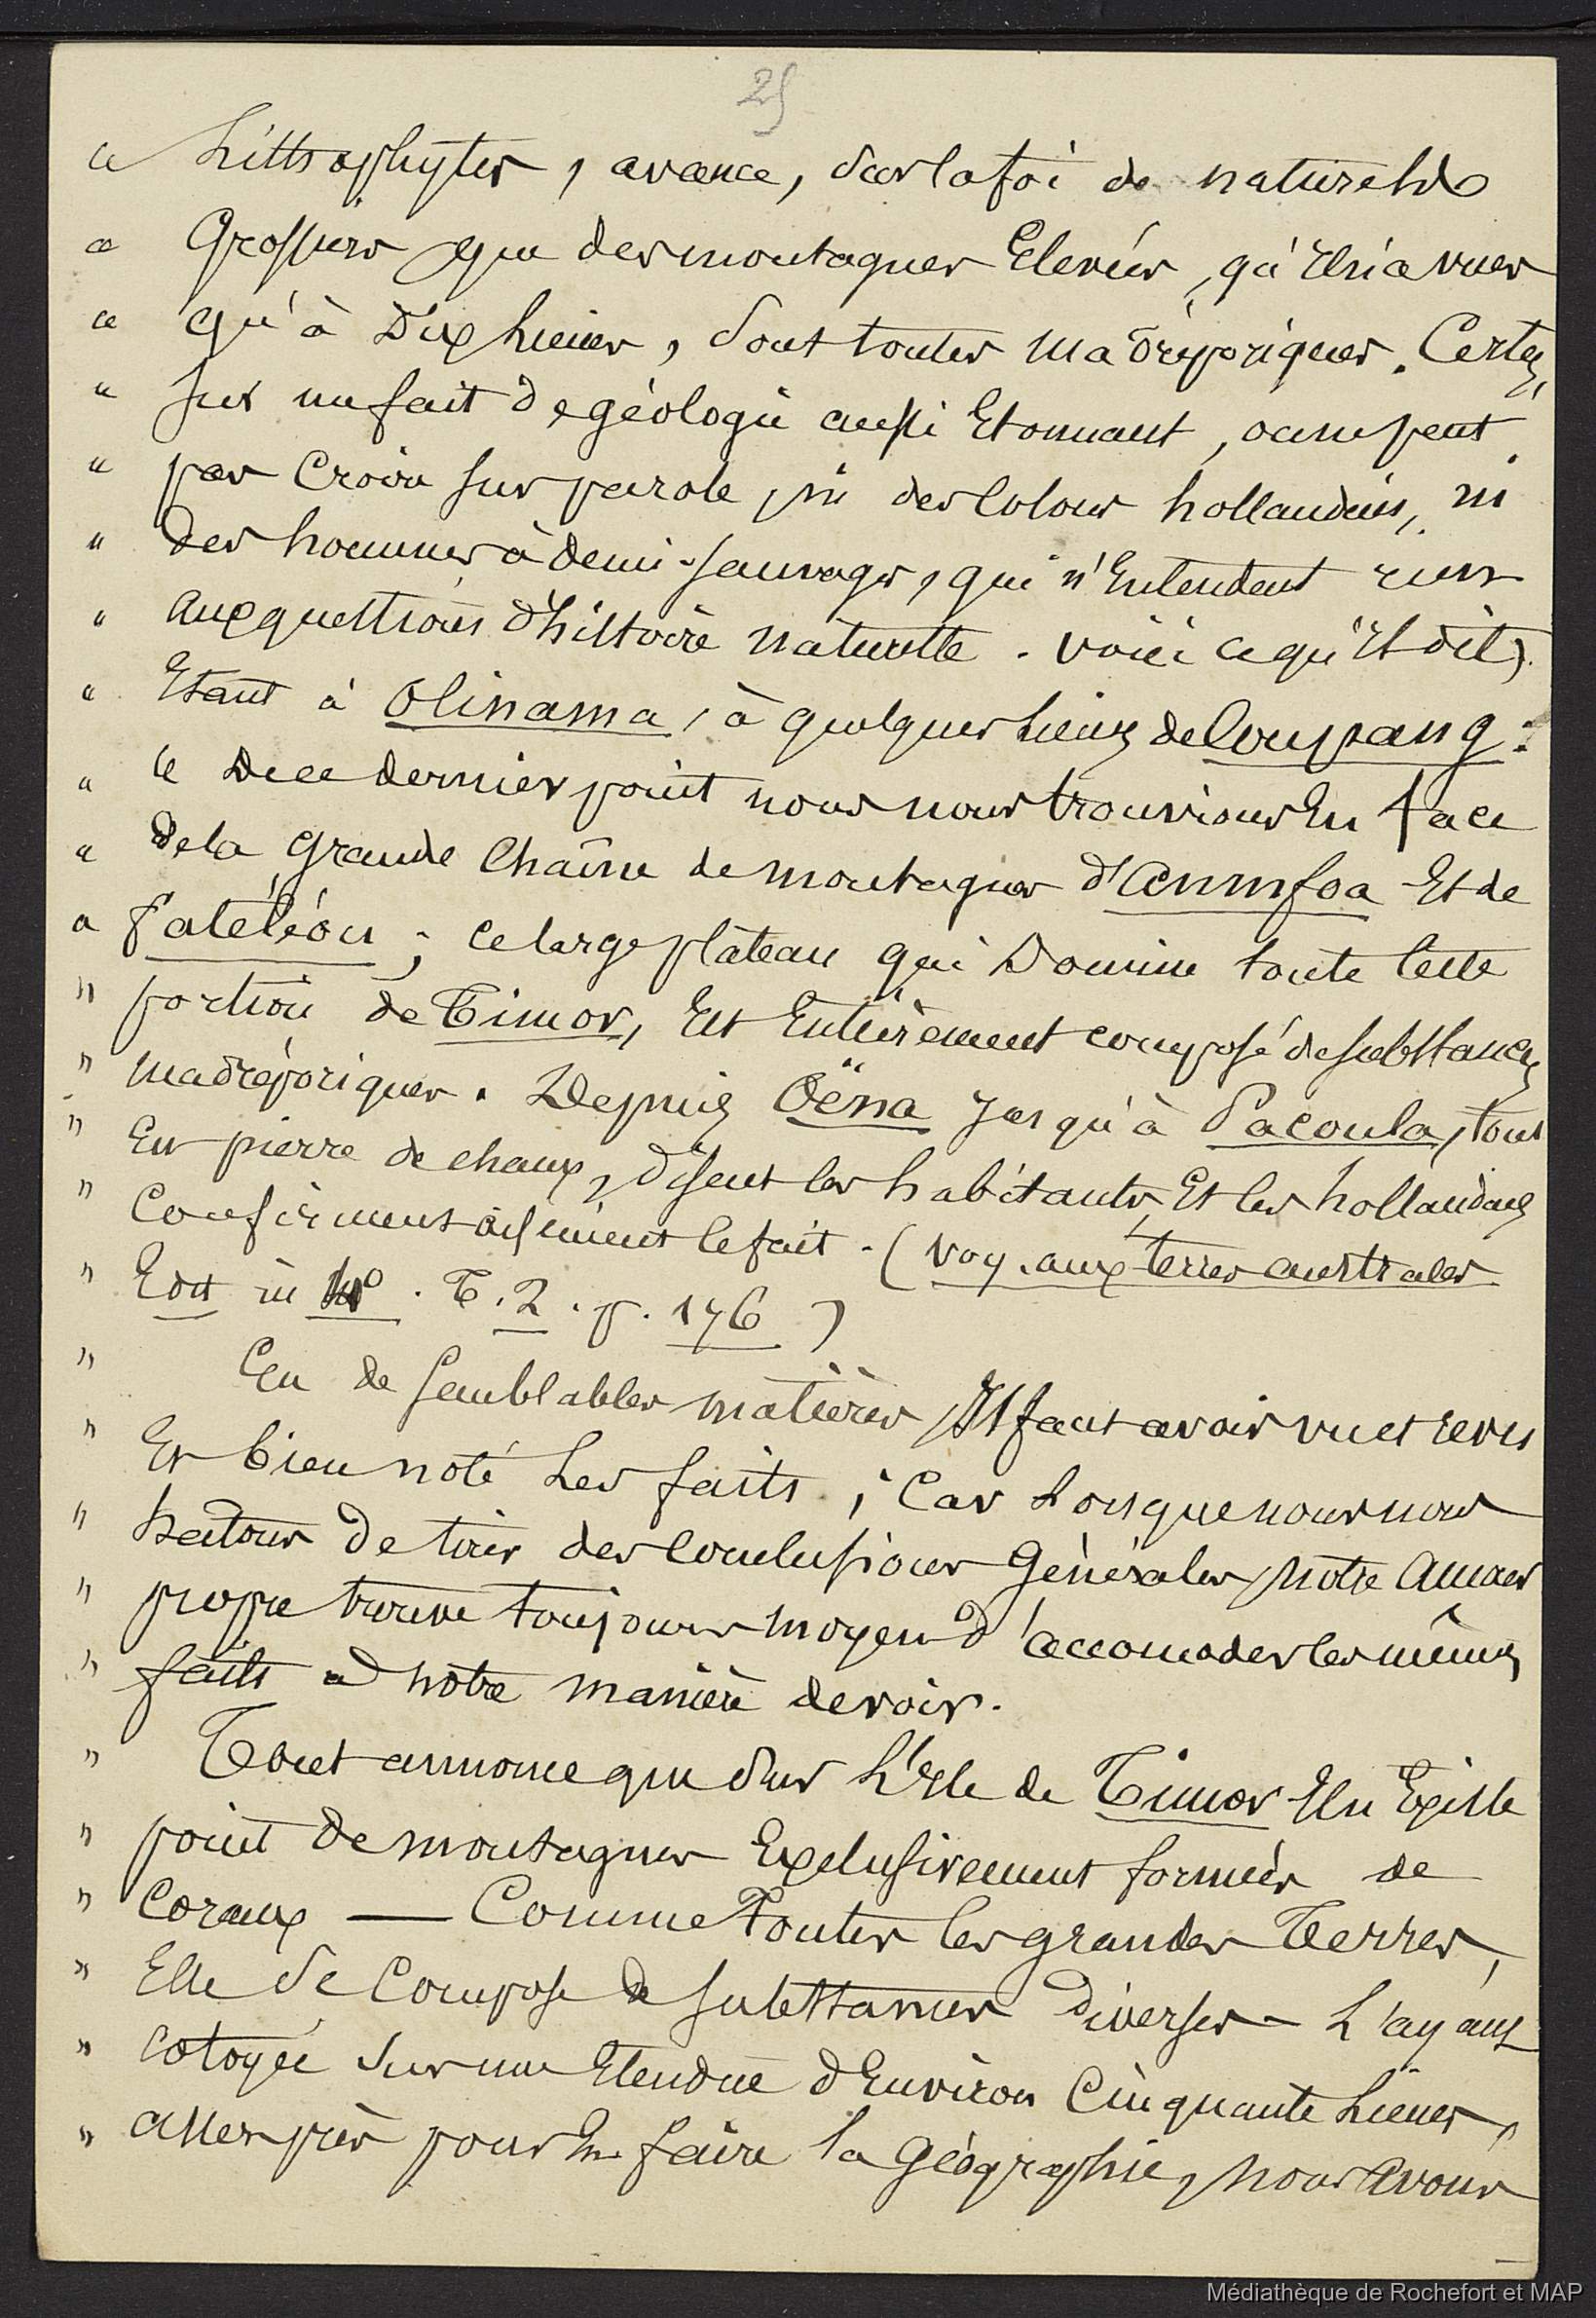 25
" Litthophytes, avance, sur la foi de naturels
" Grossiers que des montagnes Elevées, qu'Il n'a vues
" qu'à Dix lieues, sont toutes Madréporiques. Certes,
" sur un fait de géologie aussi Etonnant, on ne peut
" pas Croire sur parole, ni des Colons hollandais, ni
" des hommes à demi-sauvages, qui n'Entendent rien
" aux questions d'histoire naturelle. Voici ce qu'Il dit).
" Etant à Olinama, à quelques lieues de Coupang:
" " De ce dernier point nous nous trouvions En face
" de la grande Chaîne de montagnes d'Anmfoa Et de
" Fatéléou; ce large plateau qui Domine toute Cette
" portion de Timor, Est Entièrement composé de substances
" madréporiques. Depuis Oëna jusqu'à Pacoula, tout
" Est pierre de chaux, disent les habitants, Et les hollandais
" Confirment aisément le fait. (Voy. aux terres australes
" Edit in 4º. T. 2. p. 176)
" En de semblables matières, Il faut avoir vu et revu
" Et bien noté Les faits; Car Lorsque nous nous
" hâtons De tirer des Conclusions Générales, notre amour
" propre trouve toujours moyen d'accomoder les mêmes
" faits à notre manière de voir.
" Tout annonce que sur L'Ile de Timor Il n'Existe
" point de montagnes Exclusivement formées de
" Coraux — Comme toutes les grandes Terres,
" Elle se Compose de substances Diverses - L'ayant
" cotoyée sur une Etendue d'Environ Cinquante Lieues,
" assez près pour En faire la Géographie, nous avons
Médiathèque de Rochefort et MAP